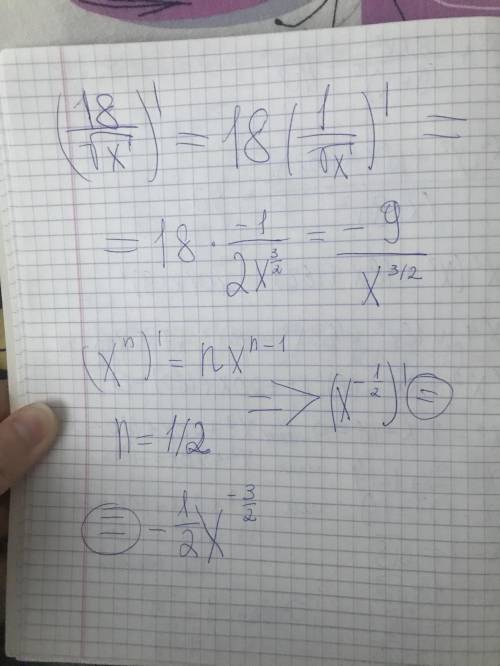 (18/√x)' = 18(1/√x)' =
= 18 · -1/2x^(3/2) = -9/x^(3/2)
(x^n)' = nx^(n-1)
n = 1/2
=> (x^(-1/2))' =
≡ -1/2 x^(-3/2)